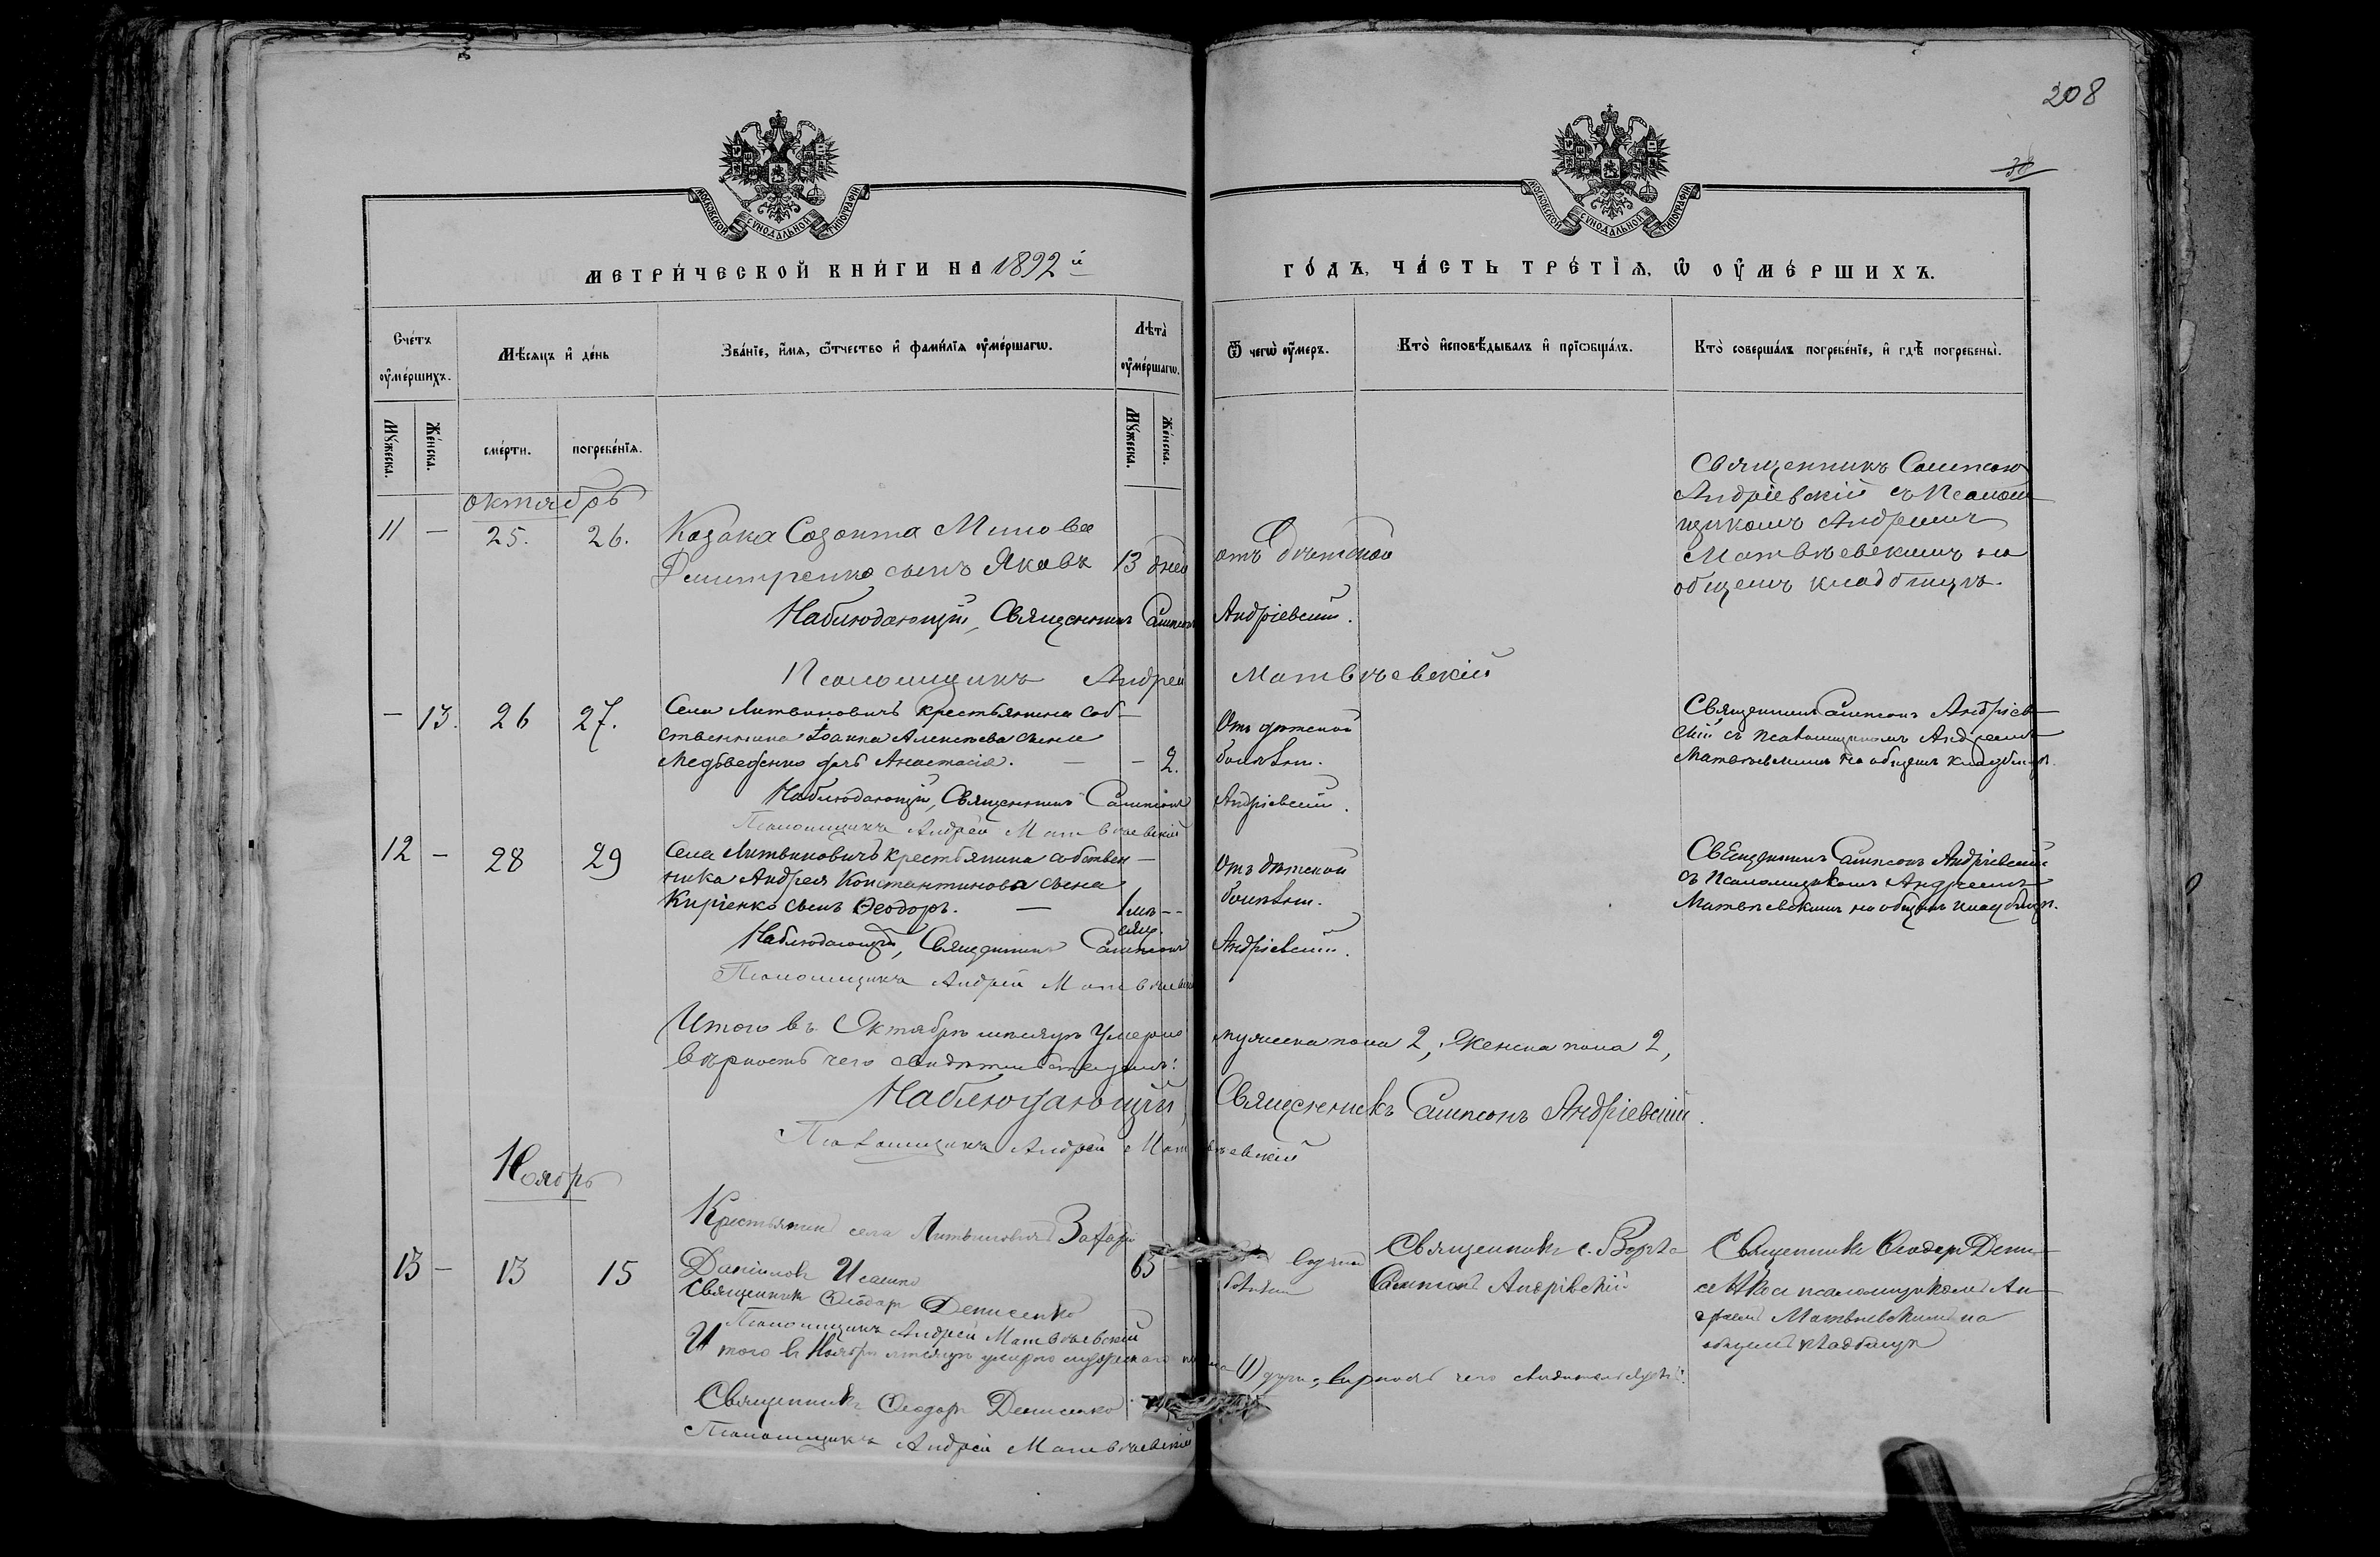 208
38
МОСКОВСКОЙ СѴНОДАЛЬНОЙ ТИПОГРАФІИ
МОСКОВСКОЙ СѴНОДАЛЬНОЙ ТИПОГРАФІИ
МЕТРИ́ЧЕСКОЙ КНИ́ГИ НА 1892й
ГО́ДЪ, ЧА́СТЬ ТРЕ́ТІѦ, Ѽ ОУ҆МЕ́РШИХЪ.
Сче́тъ оу҆ме́ршихъ.
Мѣ́сяцъ и҆ де́нь
Зва́нїе, и҆́мѧ, ѻ҆́тчество и҆ фами́лїѧ оу҆ме́ршагѡ.
Лѣта̀ оу҆ме́ршагѡ.
Ѿ чегѡ̀ оу҆́меръ.
Кто̀ и҆сповѣ́дывалъ и҆ прїѡбща́лъ.
Кто̀ соверша́лъ погребе́нїе, и҆ гдѣ̀ погребены̀.
Мꙋ́жеска.
Же́нска.
сме́рти.
погребе́нїѧ.
Мꙋ́жеска.
Же́нска.
Октябрь
11 — 25. 26.
Козака Созонта Минова
Дмитренко сынъ Яковъ 13 дней
отъ дѣтской
Священникъ Сампсонъ
Андріевскій съ Псалом
щикомъ Андреемъ
Матвѣевскимъ на
общемъ кладбищѣ.
Наблюдающій, Священникъ Сампсонъ Андріевскій.
Псаломщикъ Андрей Матвѣевскій
— 13. 26 27.
Села Литвиновичъ крестьянина соб-
ственника Іоанна Алексѣева сына
Медведенко дочь Анастасія. — — 2.
Отъ дѣтской
болѣзни.
Священникъ Сампсонъ Андріев-
скій съ псаломщикомъ Андреемъ
Матвѣевскимъ на общемъ кладбищѣ.
Наблюдающій, Священникъ Сампсонъ Андріевскій.
Псаломщикъ Андрей Матвѣевскій
12 — 28 29
Села Литвиновичъ крестьянина собствен-
ника Андрея Константинова сына
Киріенко сынъ Ѳеодоръ. — 1 мѣ-
сяц.
Отъ дѣтской
болѣзни.
Священникъ Сампсонъ Андріевскій
съ Псаломщикомъ Андреемъ
Матвѣевскимъ на общемъ кладбищѣ.
Наблюдающій, Священникъ Сампсонъ Андріевскій.
Псаломщикъ Андрей Матвѣевскій
Итого въ Октябрѣ мѣсяцѣ умерло мужеска пола 2, женска пола 2,
вѣрность чего свидѣтельствуемъ:
Наблюдающій, Священникъ Сампсонъ Андріевскій.
Псаломщикъ Андрей Матвѣевскій
Ноябрь
13 — 13 15
Крестьянинъ села Литвиновичъ Захарій
Даніиловъ Исаенко 65
болѣзни
Священникъ с.
Сампсонъ Андріевскій
Священникъ Ѳеодоръ Дени-
сенко съ псаломщикомъ Ан-
дреемъ Матвѣевскимъ на
общемъ кладбищѣ
Священникъ Ѳеодоръ Денисенко
Псаломщикъ Андрей Матвѣевскій
Итого въ Ноябрѣ мѣсяцѣ умерло мужескаго пола (1) душа, вѣрность чего свидѣтельствуемъ:
Священникъ Ѳеодоръ Денисенко
Псаломщикъ Андрей Матвѣевскій